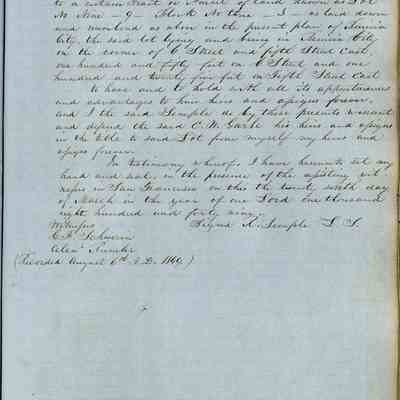 to a certain tract or Parcel of land known as Lot
No Nine – 9 – Block No three – 3 – as laid down
and numbered as above in the present plan of Benicia
City, the said lot lying and being in Benicia City
on the corner of C Street and fifth Street East,
one hundred and fifty feet on C Street and one
hundred and twenty five feet on Fifth Street East
To have and to hold with all its appurtenances
and advantages to him heirs and assigns forever.
and I the said Semple do by these presents warrant
and defend the said C. W. his heirs and assigns
in the title to said Lot from myself my heirs and
assigns forever.
In testimony whereof I have hereunto set my
hand and seal, in the presence of the assisting wit-
nesses in San Francisco on this the twenty sixth day
of March in the year of our Lord one thousand
eight hundred and forty nine.
Witnesses Signed R. Semple L. S.
C. F.
(Recorded August 6th A.D. 1860.)